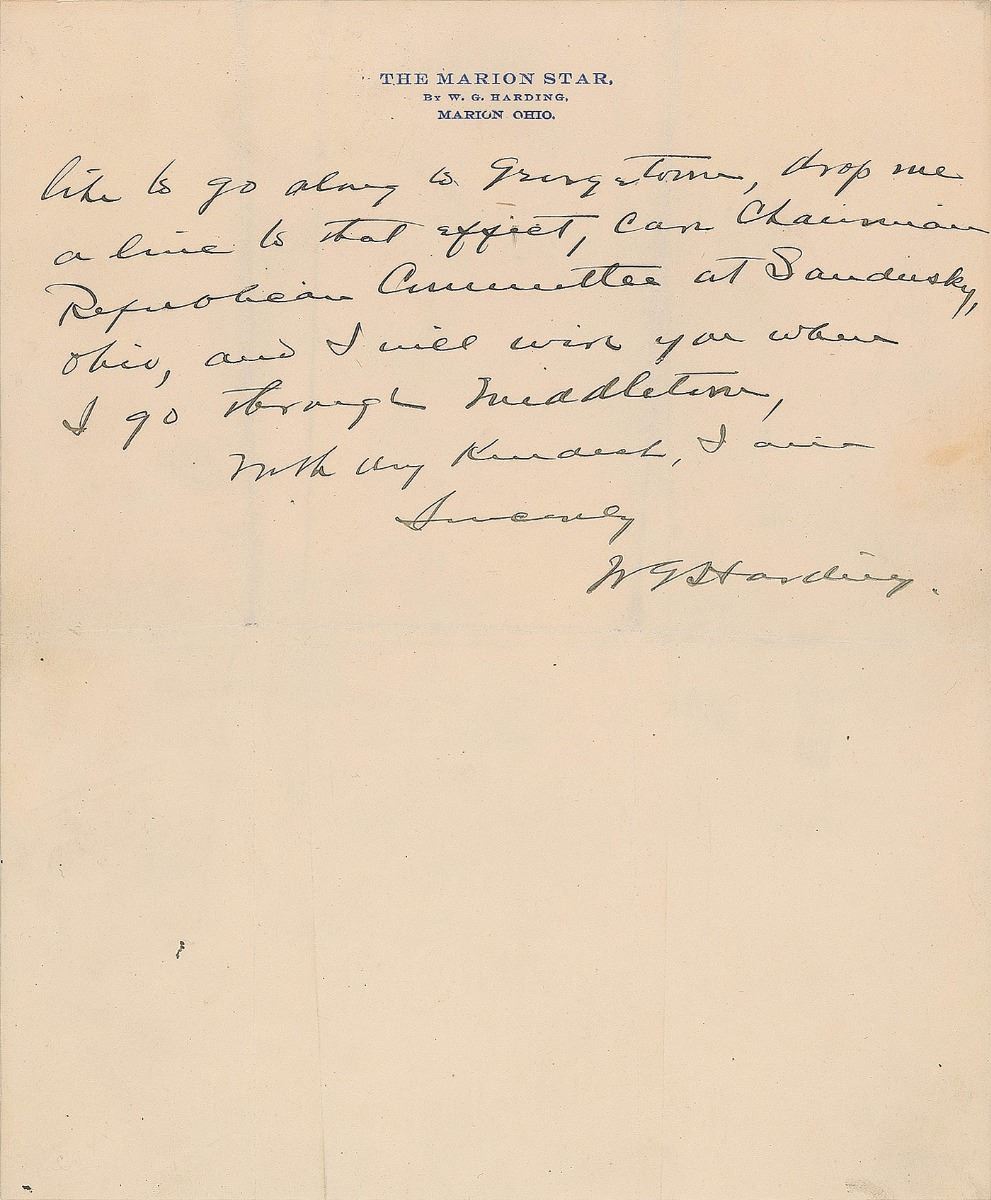 THE MARION STAR,
BY W. G. HARDING,
MARION OHIO.
like to go along to Georgetown, drop me
a line to that effect, care Chairman
Republican Committee at Sandusky,
Ohio, and I will wire you when
I go through Middletown,
With my Kindest, I am
Sincerely
WGHarding.